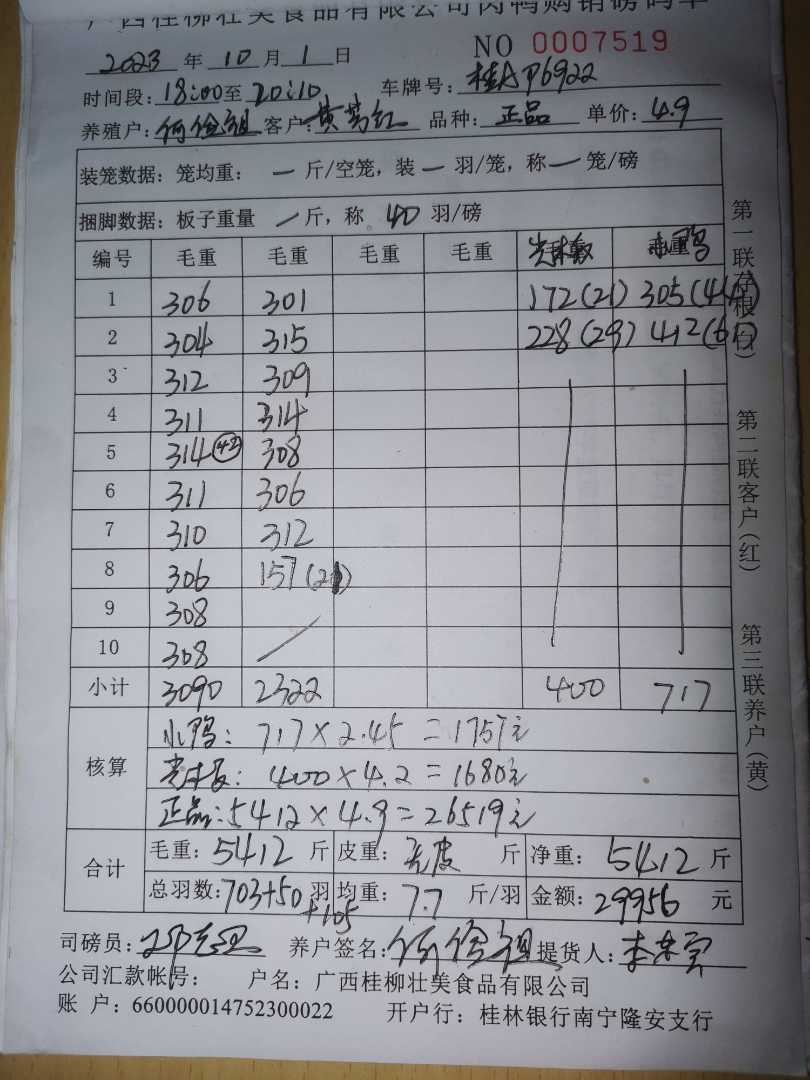 广西桂柳壮美食品有限公司肉鸭购销磅码单
2023 年 10 月 1 日 NO 0007519
时间段: 18:00 至 20:10 车牌号: 桂AP6922
养殖户: 何俭祖 客户: 黄芳红 品种: 正品 单价: 4.9
装笼数据: 笼均重: 一 斤/空笼, 装 一 羽/笼, 称 一 笼/磅
捆脚数据: 板子重量 / 斤, 称 40 羽/磅
编号 毛重 毛重 毛重 毛重
1 306 301 172(21) 305(44)
2 304 315 228(29) 412(61)
3 312 309
4 311 314
5 314 (42) 308
6 311 306
7 310 312
8 306 157(21)
9 308
10 308
小计 3090 2322 400 717
核算 小鸭: 717×2.45=1757元
400×4.2=1680元
正品: 5412×4.9=26519元
合计 毛重: 5412 斤 皮重: 去皮 斤 净重: 5412 斤
总羽数: 703+50 羽 均重: 7.7 斤/羽 金额: 29956 元
+105
司磅员: 养户签名: 何俭祖 提货人:
公司汇款帐号: 户名: 广西桂柳壮美食品有限公司
账 户: 660000014752300022 开户行: 桂林银行南宁隆安支行
第一联存根(白)
第二联客户(红)
第三联养户(黄)